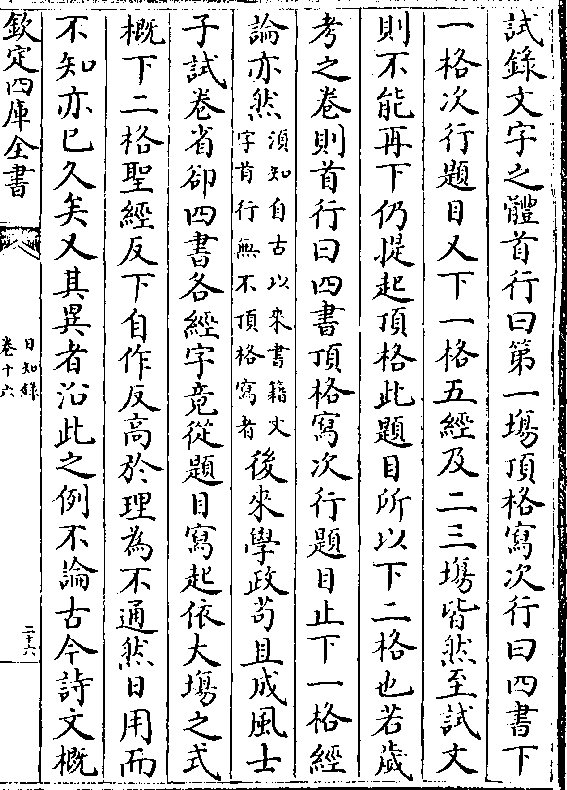 試錄文字之體首行曰第一塲頂格寫次行曰四書下
一格次行題目又下一格五經及二三塲皆然至試文
則不能再下仍提起頂格此題目所以下二格也若歲
考之卷則首行曰四書頂格寫次行題目止下一格經
論亦然須知自古以來書籍文
字首行無不頂格寫者後來學政苟且成風士
子試卷省卻四書各經字竟從題目寫起依大塲之式
概下二格聖經反下自作反高於理為不通然日用而
不知亦已久矣又其異者沿此之例不論古今詩文概
欽定四庫全書
日知錄
卷十六
二十六